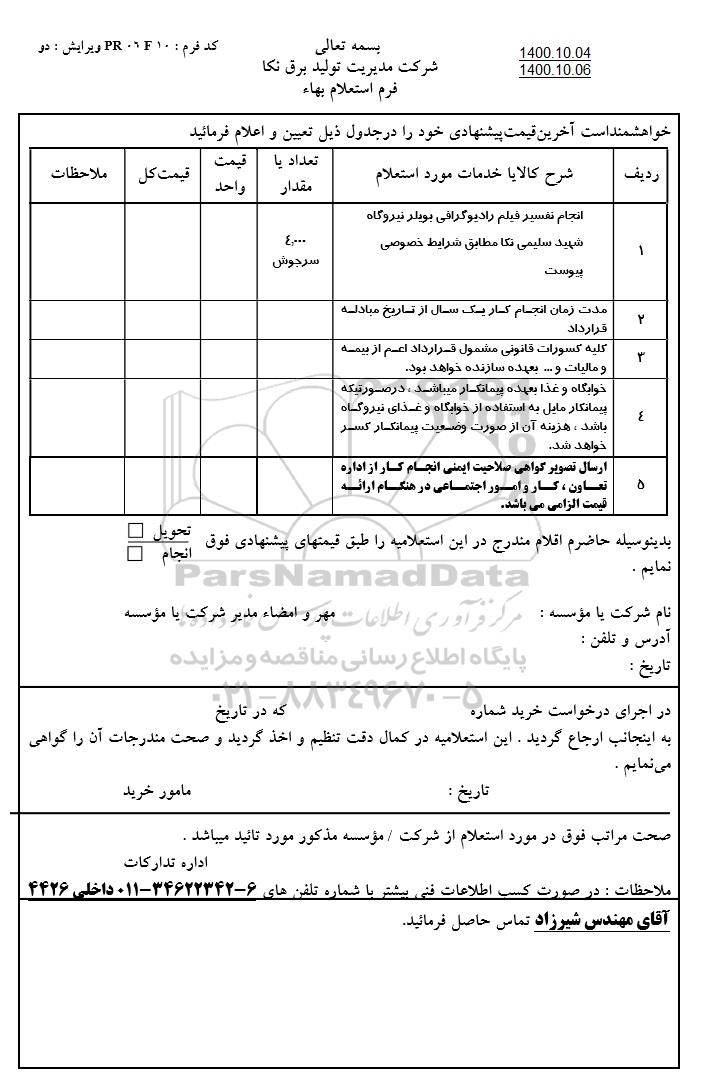 بسمه تعالی
کد فرم : PR ۰۶ F ۱۰ ویرایش : دو
شرکت مدیریت تولید برق نکا
فرم استعلام بهاء
1400.10.04
1400.10.06
خواهشمنداست آخرین‌قیمت‌پیشنهادی خود را درجدول ذیل تعیین و اعلام فرمائید
ردیف
شرح کالایا خدمات مورد استعلام
تعداد یا
مقدار
قیمت
واحد
قیمت‌کل
ملاحظات
۱
انجام تفسیر فیلم رادیوگرافی بویلر نیروگاه
شهید سلیمی نکا مطابق شرایط خصوصی
پیوست
٤,۰۰۰
سرجوش
۲
مدت زمان انجام کار یک سال از تاریخ مبادله
قرارداد
۳
کلیه کسورات قانونی مشمول قرارداد اعم از بیمه
و مالیات و ... بعهده سازنده خواهد بود.
٤
خوابگاه و غذا بعهده پیمانکار میباشد ، درصورتیکه
پیمانکار مایل به استفاده از خوابگاه و غذای نیروگاه
باشد ، هزینه آن از صورت وضعیت پیمانکار کسر
خواهد شد.
۵
ارسال تصویر گواهی صلاحیت ایمنی انجام کار از اداره
تعاون ، کار و امور اجتماعی در هنگام ارائه
قیمت الزامی می باشد.
بدینوسیله حاضرم اقلام مندرج در این استعلامیه را طبق قیمتهای پیشنهادی فوق
تحویل
انجام
نمایم .
ParsNamadData
نام شرکت یا مؤسسه :
مهر و امضاء مدیر شرکت یا مؤسسه
مرکز فرآوری اطلاعات پارس نماد داده ها
آدرس و تلفن :
پایگاه اطلاع رسانی مناقصه و مزایده
تاریخ :
۰۲۱-۸۸۳۴۹۶۷۰-۵
در اجرای درخواست خرید شماره
که در تاریخ
به اینجانب ارجاع گردید . این استعلامیه در کمال دقت تنظیم و اخذ گردید و صحت مندرجات آن را گواهی
می‌نمایم .
تاریخ :
مامور خرید
صحت مراتب فوق در مورد استعلام از شرکت / مؤسسه مذکور مورد تائید میباشد .
اداره تدارکات
ملاحظات : در صورت کسب اطلاعات فنی بیشتر با شماره تلفن های ۶-۳۴۶۲۲۳۴۲-۰۱۱ داخلی ۴۴۲۶
آقای مهندس شیرزاد تماس حاصل فرمائید.